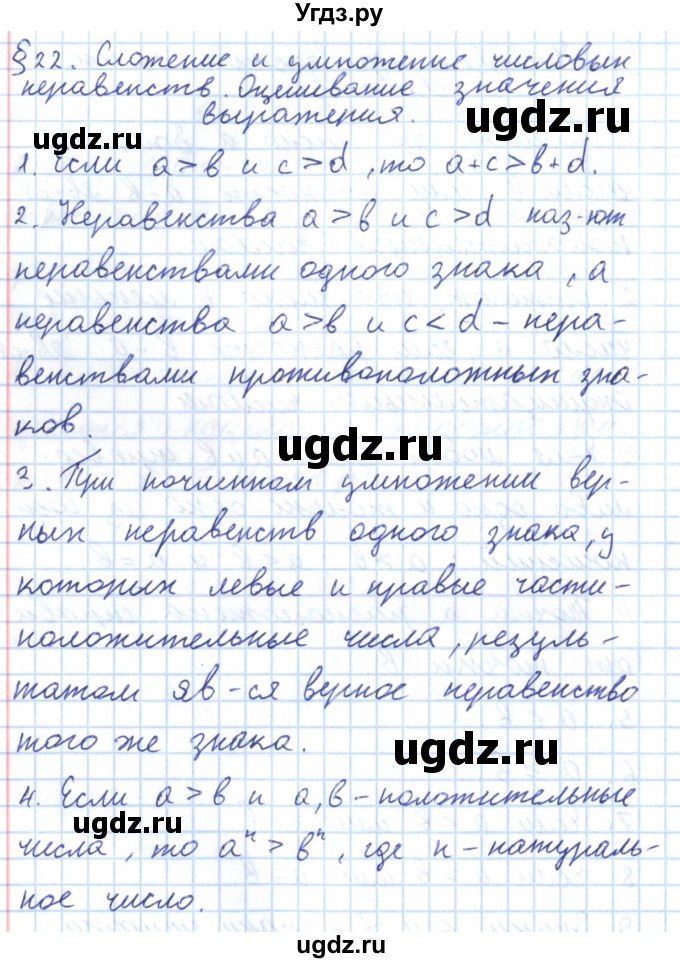 Угдз.ру
§22. Сложение и умножение числовых
неравенств. Оценивание значения
выражения.
ugdz.ru
ugdz.ru
1. Если a > b и c > d, то a+c > b+d.
2. Неравенства a > b и c > d наз-ют
неравенствами одного знака, а
неравенства a > b и c < d – нера-
венствами противоположных зна-
ков.
ugdz.ru
3. При почленном умножении вер-
ных неравенств одного знака, у
которых левые и правые части –
положительные числа, резуль-
татом яв-ся верное неравенство
того же знака.
ugdz.ru
4. Если a > b и a, b – положительные
ugdz.ru
числа, то aⁿ > bⁿ, где n – натураль-
ное число.
ugdz.ru